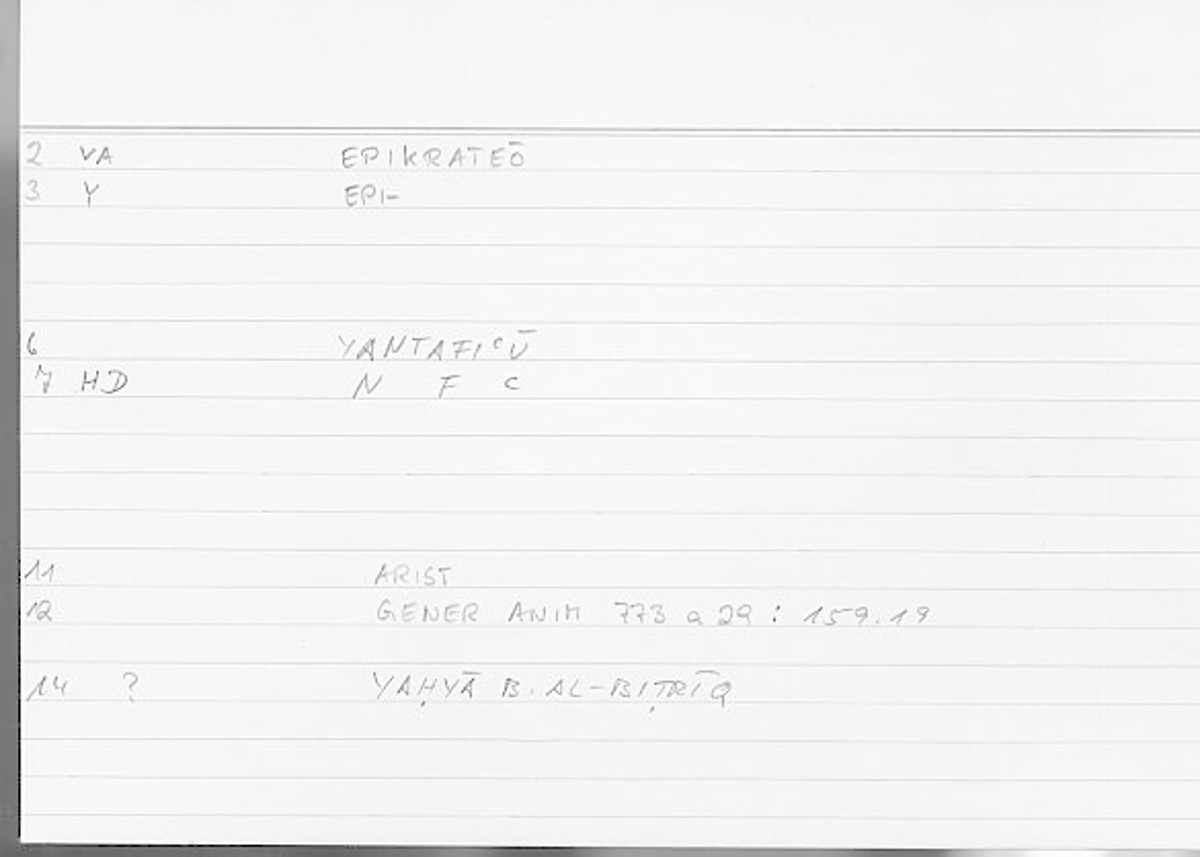 2 VA EPIKRATEŌ
3 Y EPI-
6 YANTAFIᶜŪ
7 HD N F C
11 ARIST
12 GENER ANIM 773 a 29 : 159.19
14 ? YAḤYĀ B. AL-BIṬRĪQ